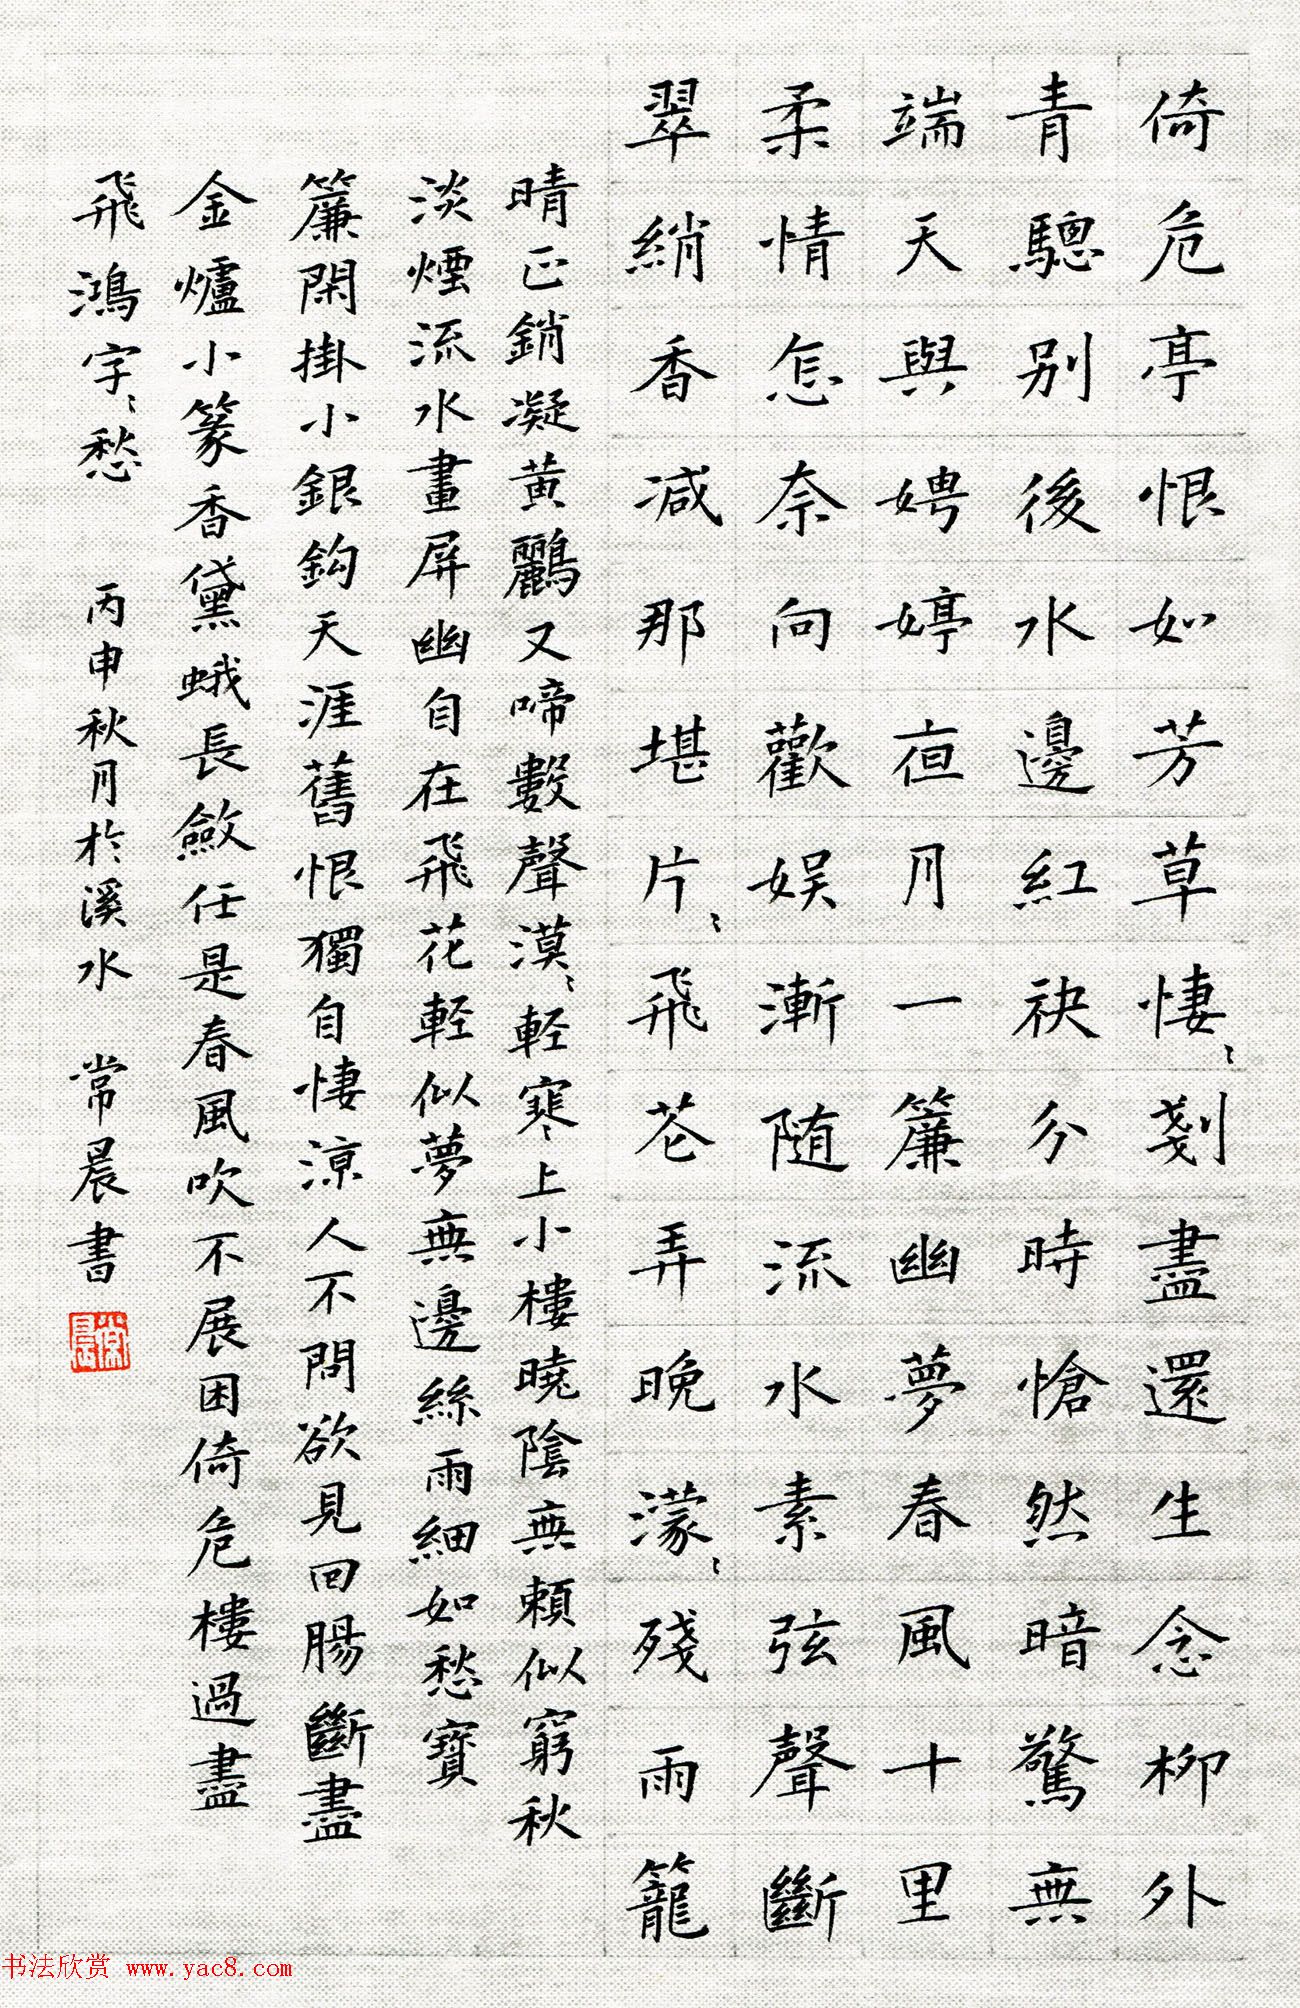 倚危亭恨如芳草悽〻剗盡還生念柳外
青驄别後水邊紅袂分時愴然暗驚無
端天與娉婷夜月一簾幽夢春風十里
柔情怎奈向歡娱漸随流水素弦聲斷
翠綃香减那堪片〻飛花弄晚濛〻殘雨籠
晴正銷凝黄鸝又啼數聲漠〻輕寒上小樓曉陰無賴似窮秋
淡煙流水畫屏幽自在飛花輕似夢無邊絲雨細如愁寶
簾閑掛小銀鈎天涯舊恨獨自悽涼人不問欲見回腸斷盡
金爐小篆香黛蛾長斂任是春風吹不展困倚危樓過盡
飛鴻字〻愁 丙申秋月於溪水 常晨書
常晨
书法欣赏 www.yac8.com